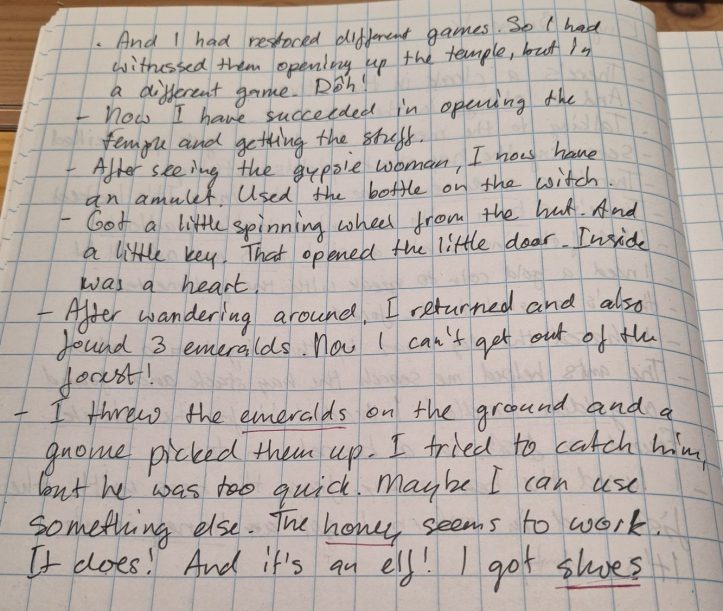 . And I had restored different games. So I had
witnessed them opening up the temple, but in
a different game. Dôh!
- Now I have succeeded in opening the
temple and getting the stuff.
- After seeing the gypsie woman, I now have
an amulet. Used the bottle on the witch.
- Got a little spinning wheel from the hut. And
a little key. That opened the little door. Inside
was a heart.
- After wandering around, I returned and also
found 3 emeralds. Now I can't get out of the
forest!
- I threw the emeralds on the ground and a
gnome picked them up. I tried to catch him,
but he was too quick. Maybe I can use
something else. The honey seems to work.
It does! And it's an elf! I got shoes